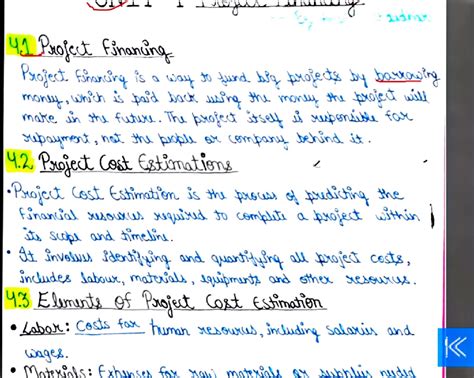 4.1 Project Financing
Project Financing is a way to fund big projects by borrowing
money, which is paid back using the money the project will
make in the future. The project itself is responsible for
repayment, not the people or company behind it.
4.2 Project Cost Estimations
• Project Cost Estimation is the process of predicting the
financial resources required to complete a project within
its scope and timeline.
• It involves identifying and quantifying all project costs,
includes labour, materials, equipments and other resources.
4.3 Elements of Project Cost Estimation
• Labor: Costs for human resources, including salaries and
wages.
• Materials: Expenses for raw materials or supplies needed